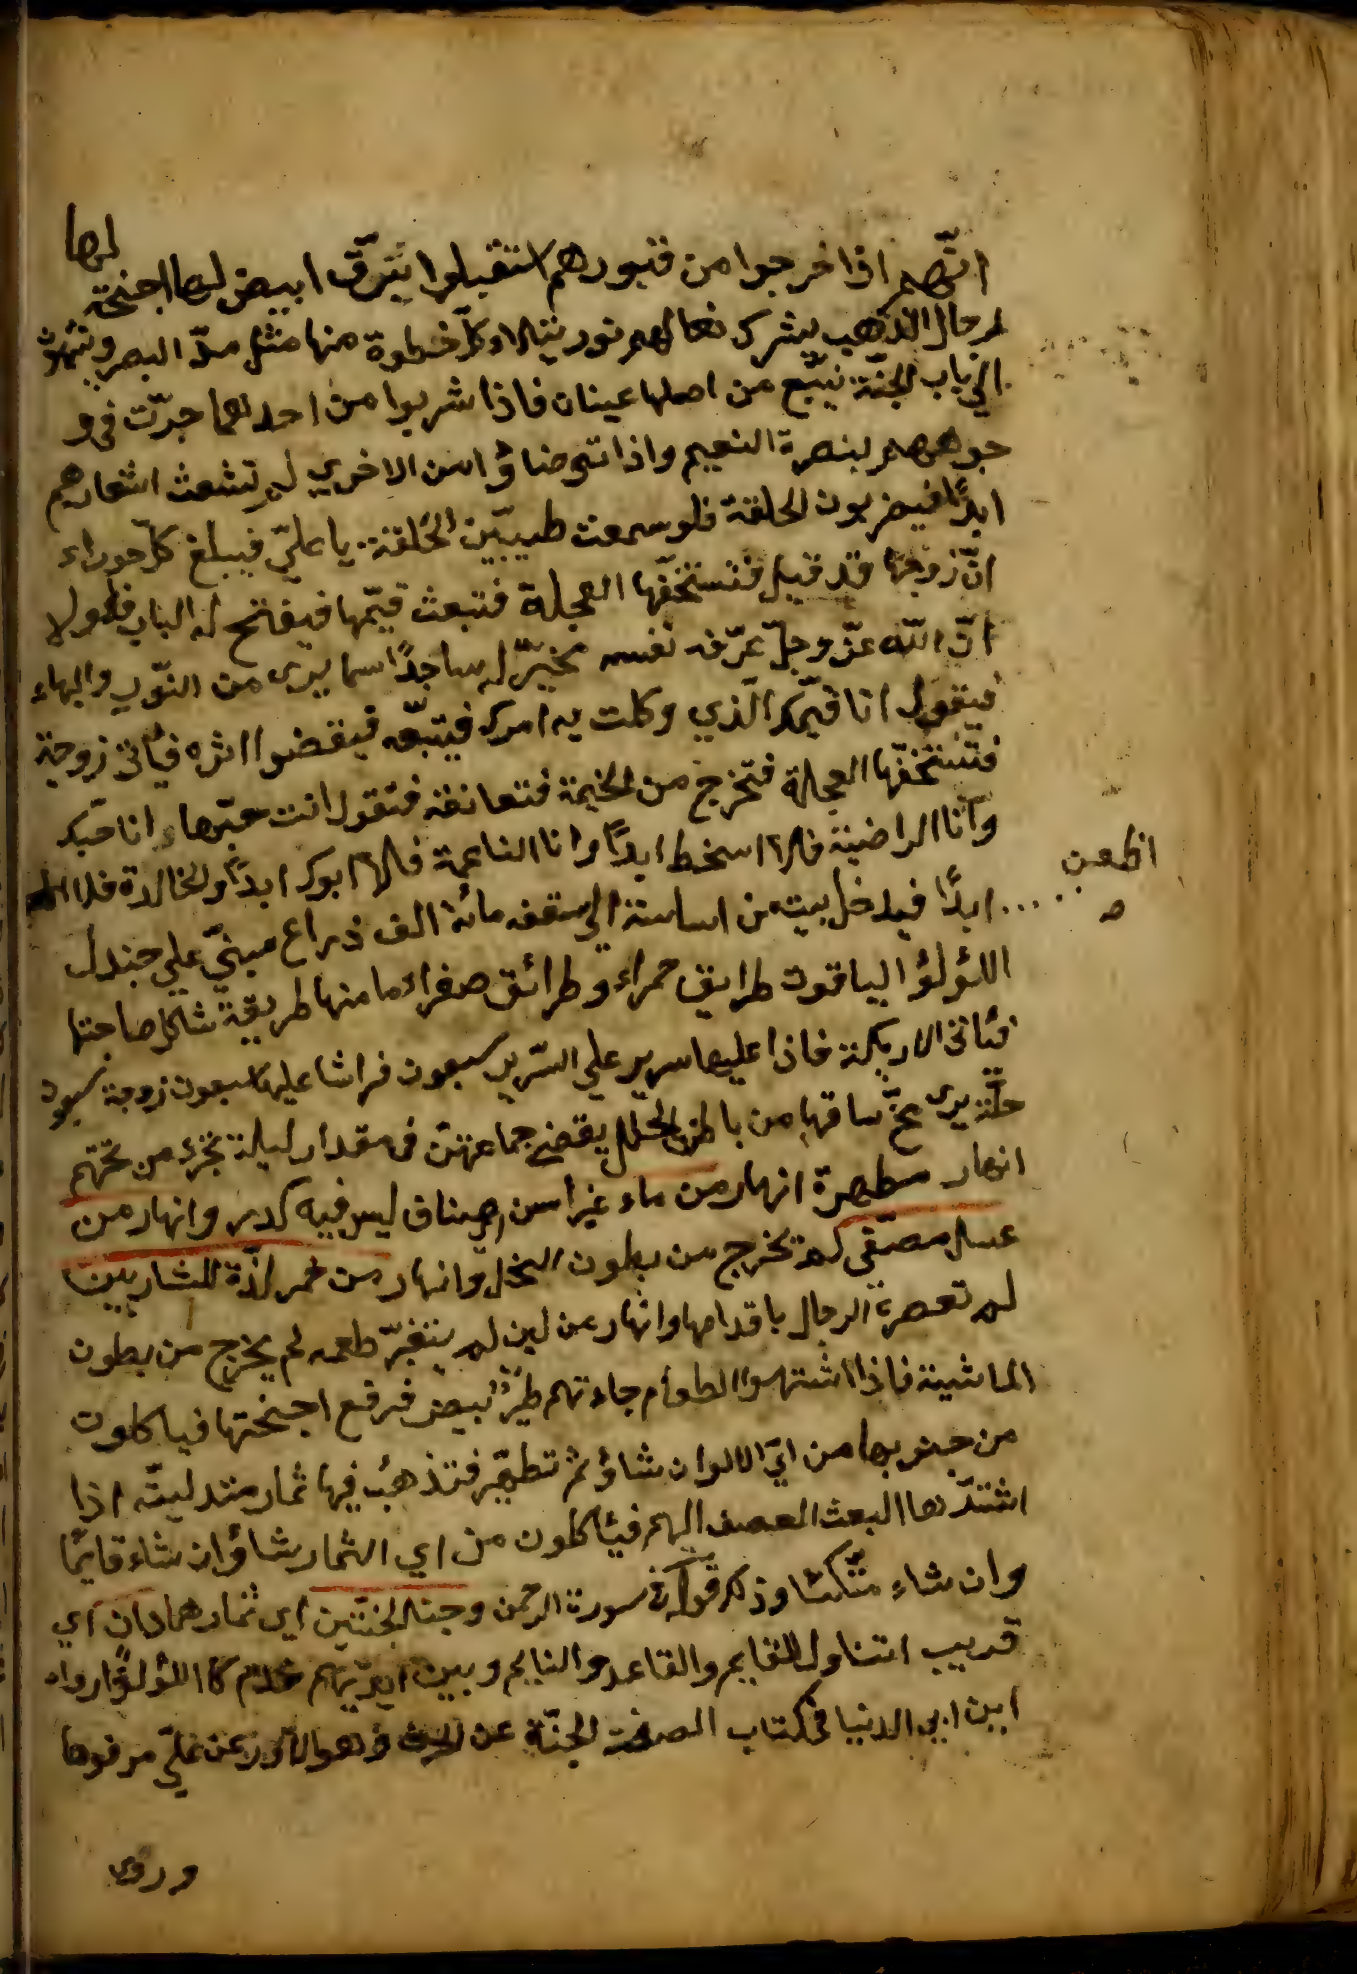 لها
انّهم اذا خرجوا من قبورهم استقبلوا بنوق ابيض لها اجنحة
رحال الذهب يشرك نعالهم نور يتلالاء كلّ خطوة منها مثل مدّ البصر وينتهون
الي باب الجنّة نبّع من اصلها عينان فاذا شربوا من احدهما جرّت في و
جوههم بنصرة النعيم واذا توضاؤ امن الاخري لم تشعث اشعارهم
ابدًا فيضربون الحلقة فلو سمعت طيبّين الحلقة يا عليّ فيبلغ كلّ حوراء
انّ زوجها قد قبل فتستخفّها العجلة فتبعث قيّمها فيفتح له الباب فلولا
انّ اللّه عزّ وجلّ عرّفه نفسه لخرّ له ساجدًا مما يرى من النّور والبهاء
فيقول انا قيّمك الّذي وكلت به امرك فيتبّعه فيقضوا اثره فيأتي زوجة
فتستخفّها العجلة فتخرج من الخيمة فتعانقه فتقول انت حبّي وانا حبّك
وانا الراضية فلا اسخط ابدًا وانا الناعمة فلا ابوك ابدًا والخالدة فلا
اظعن
صح
ابدًا فيدخل بيت من اساسته الي سقفه مائة الف ذراع مبنيّ علي جندل
اللؤلؤ الياقوت طرايق حمراء وطرائق صفراء ما منها طريقة تشاكل صاحبتها
فيأتي الاريكة فاذا عليها سرير علي السّرير سبعون فراشا عليها سبعون زوجة سبعون
حلّة يرى مخّ ساقها من باطن الحلل يقضي جماعهنّ في مقدار ليلة تجري من تحتهم
انهار مطهرة انهار من ماء غير اسن صاف ليس فيه كدر وانهار من
عسل مصفّى لم تخرج من بطون النحل وانهار من خمر لذّة للشاربين
لم تعصره الرجال باقدامها وانهار من لبن لم يتغيّر طعمه لم يخرج من بطون
الماشية فاذا اشتهوا الطعام جاءتهم طيرٌ بيض فرفع اجنحتها فياكلون
من جنوبها من ايّ الالوان شاؤ ثم تطيّر فتذهب فيها ثمار متدليّه اذا
اشتدّها البعث الغصن اليهم فيأكلون من اي الثمار شاؤ ان شاء قايمًا
وان شاء متّكئا وذكر قوله في سورة الرحمن وجنا الجنّتين اي ثمارهما دان اي
قريب اتناول للقايم والقاعد والنايم وبين ايديهم خدم كا اللؤلؤ رواه
ابن ابي الدنيا في كتاب الصفت الجنّة عن الحرث وهو الاعور عن عليّ مرفوعا
وروي